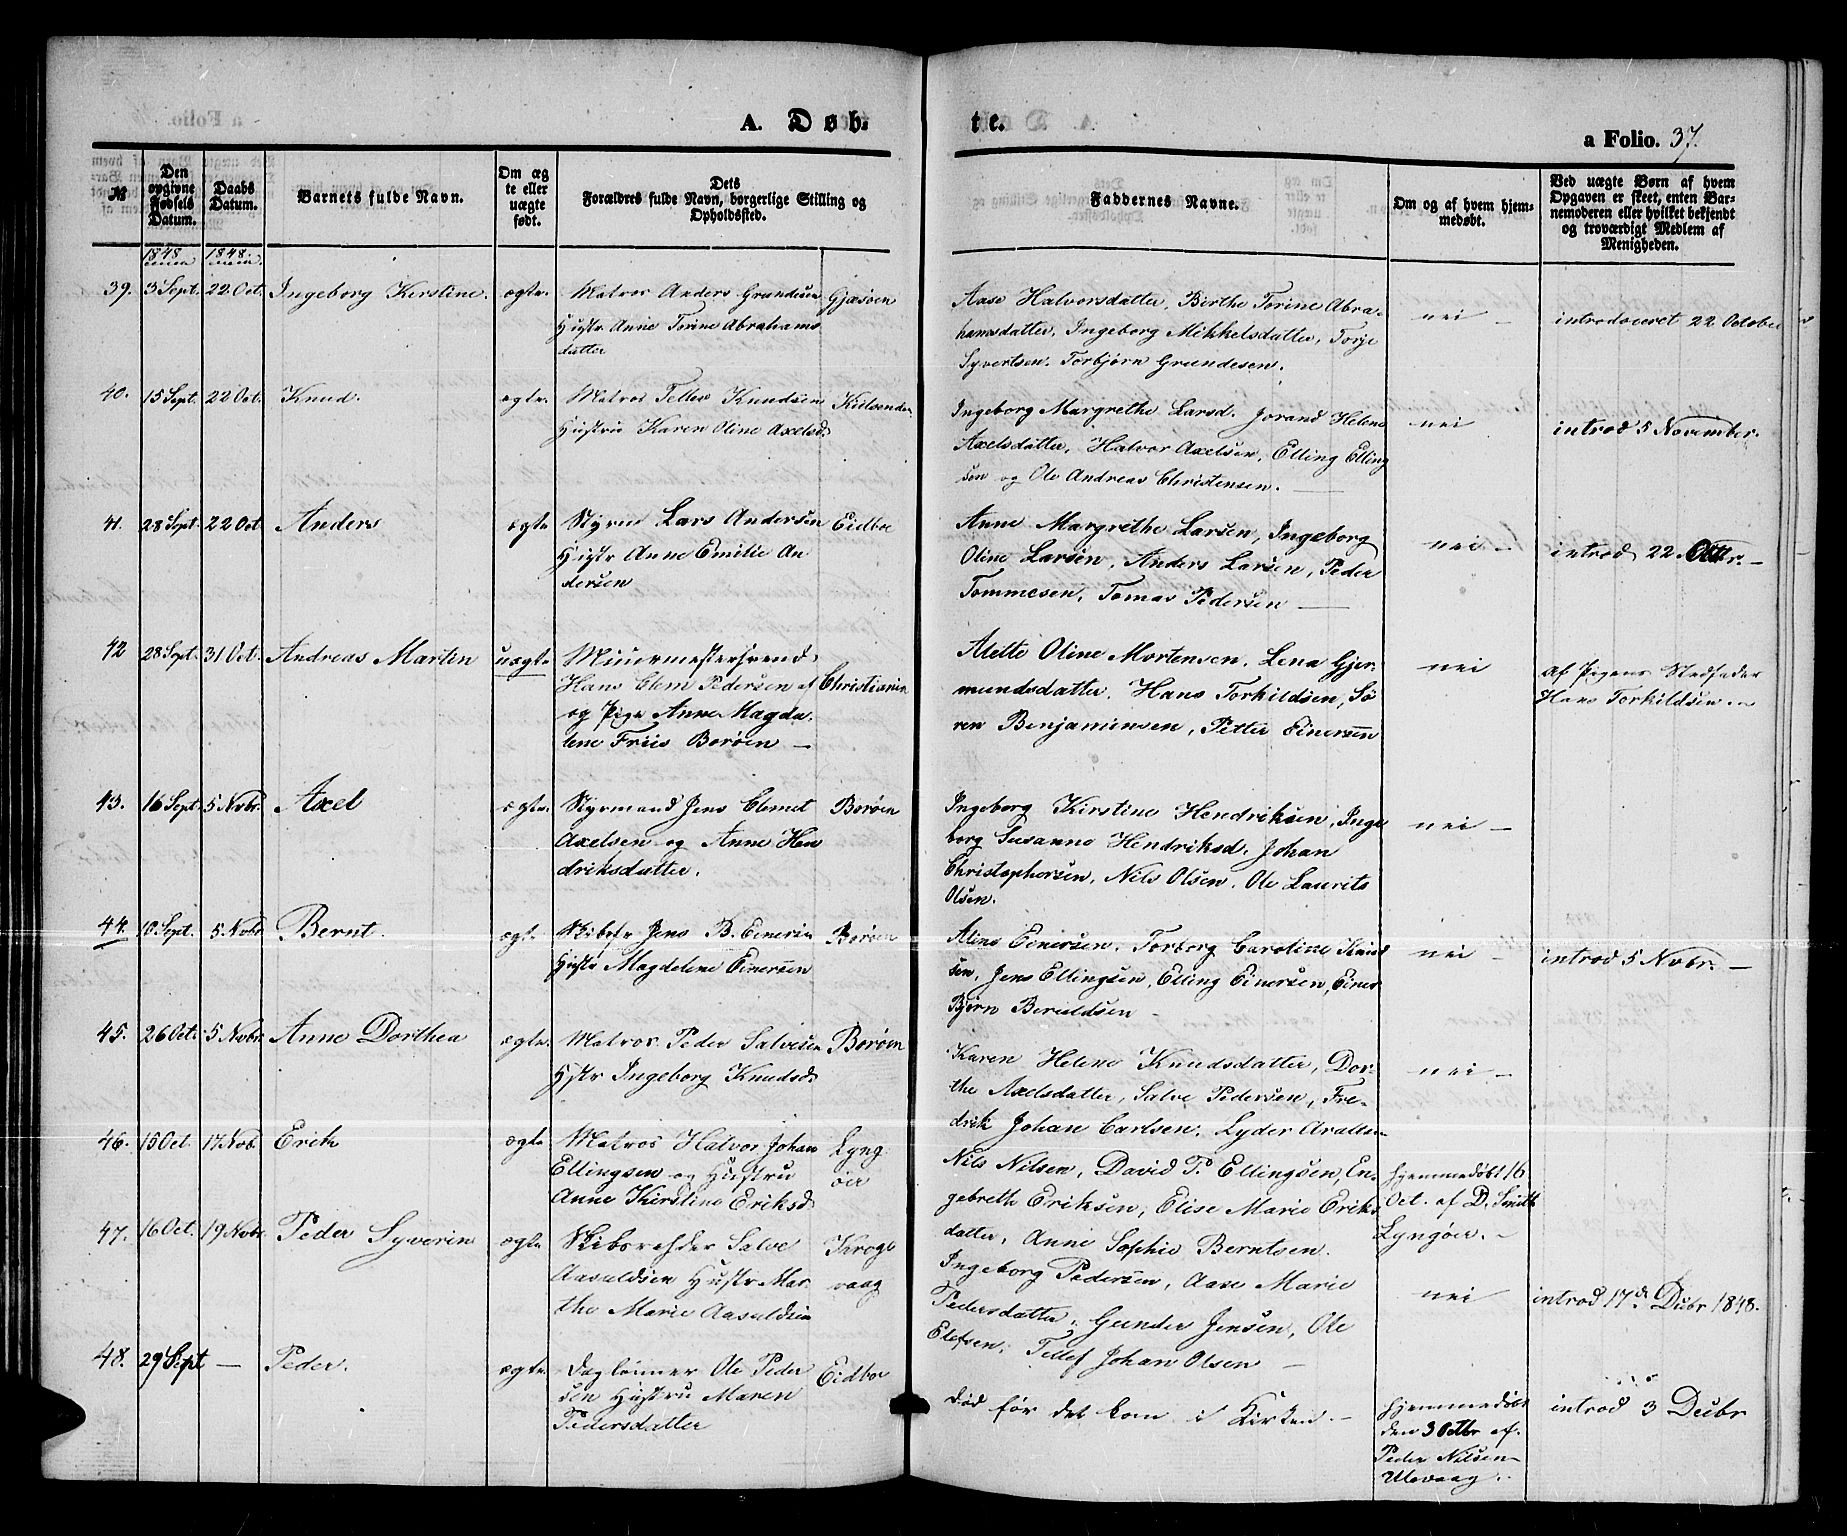 A. Døb=
te.
a Folio. 37.
№
Den opgivne Fødsels Datum.
Daabs Datum.
Barnets fulde Navn.
Om ægte eller uægte født.
Dets Forældres fulde Navn, borgerlige Stilling og Opholdssted.
Faddernes Navne.
Om og af hvem hjemmedøbt.
Ved uægte Børn af hvem Opgaven er skeet, enten Barnemoderen eller hvilket bekjendt og troværdigt Medlem af Menigheden.
1848 1848
39. 3 Sept. 22 Oct. Ingeborg Kirstine. ægte. Matros Anders Grundesen Gjæsøen
Hustr Anne Torine Abrahams
datter
Aase Halvorsdatter, Birthe Torine Abra-
hamsdatter, Ingeborg Mikkelsdatter, Torje
Syvertsen. Torbjørn Grundesen.
nei — introduceret 22 October
40. 15 Sept. 22 Oct. Knud. ægte. Matros Tellef Knudsen
Hustru Karen Oline Axelsd.
Ingeborg Margrethe Larsd. Jorand Helene
Axelsdatter, Halvor Axelsen, Elling Elling
sen og Ole Andreas Christensen. —
nei introd 5 November.
41. 28 Sept. 22 Oct Anders ægte Styrm Lars Andersen Eidboe
Hustr Anne Emilie An
dersen
Anne Margrethe Larsen, Ingeborg
Oline Larsen, Anders Larsen, Peder
Tommesen, Tomas Pedersen —
nei — introd 22 Octbr. —
42 28 Sept. 31 Oct. Andreas Martin uægte Muurmestersvend
Hans Clem Pedersen af Christiania
og Pige Anne Magda
lene Friis Borøen —
Alette Oline Mortensen, Lena Gjer-
mundsdatter, Hans Torkildsen, Sø
ren Benjaminsen, Petter Einersen
nei af Pigens Stedfader
Hans Torkildsen
43. 16 Sept. 5 Nvbr. Axel ægte. Styrmand Jens Clemet Borøen
Axelsen og Anne Hen
driksdatter.
Ingeborg Kirstine Hendriksen, Inge
borg Susanne Hendriksd. Johan
Christophersen, Nils Olsen, Ole Laurits
Olsen.
nei —
44. 10 Sept. 5 Nvbr Bernt. ægte Skibsfr Jens B. Einersen Borøen
Hustr Magdelene Einersen
Aline Einersen, Torborg Caroline Knud
sen, Jens Ellingsen, Elling Einersen, Einer
Bjørn Beruldsen —
nei — introd 5 Nvbr. —
45. 26 Oct. 5 Nvbr. Anne Dorthea ægte. Matros Peder Salvesen Borøen
Hstr Ingeborg Knudsd.
Karen Helene Knudsdatter, Dor-
the Axelsdatter, Salve Pedersen, Fre-
drik Johan Carlsen. Lyder
nei —
46. 15 Oct. 17 Nvb. Erik ægte Matros Halvor Johan Lyng
Ellingsen og Hustru øer
Anne Kirstine Eriksd
Nils Nilsen, David T. Ellingsen, En-
gebreth Eriksen, Elise Marie Eriks
datter, Anne Sophie Berntsen.
hjemmedøbt 16
Oct. af D. Smith
Lyngøer. —
47. 16 Oct. 19 Nvbr. Peder Syverin ægte Skibsrehder Salve Krogs
Aasuldsen Hustr Mar- vaag
the Marie Aasuldsen
Ingeborg Pedersen, Aase Marie
Pedersdatter, Gunder Jensen, Ole
Elefsen, Tellef Johan Olsen —
nei introd 17de Dcbr 1848.
48. 29 Sept — Peder. ægte. Daglønner Ole Peder Eidboe
sen Hustru Maren
Pedersdatter
død før det kom i Kirken. —
hjemmedøbt
den 3 Octbr af.
Peder Nilsen
Ulevaag.
introd 3 Dcbr